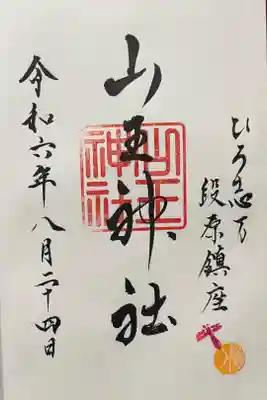 ひろ志万
段原鎮座
山王神社
山王
神社
令和六年八月二十四日